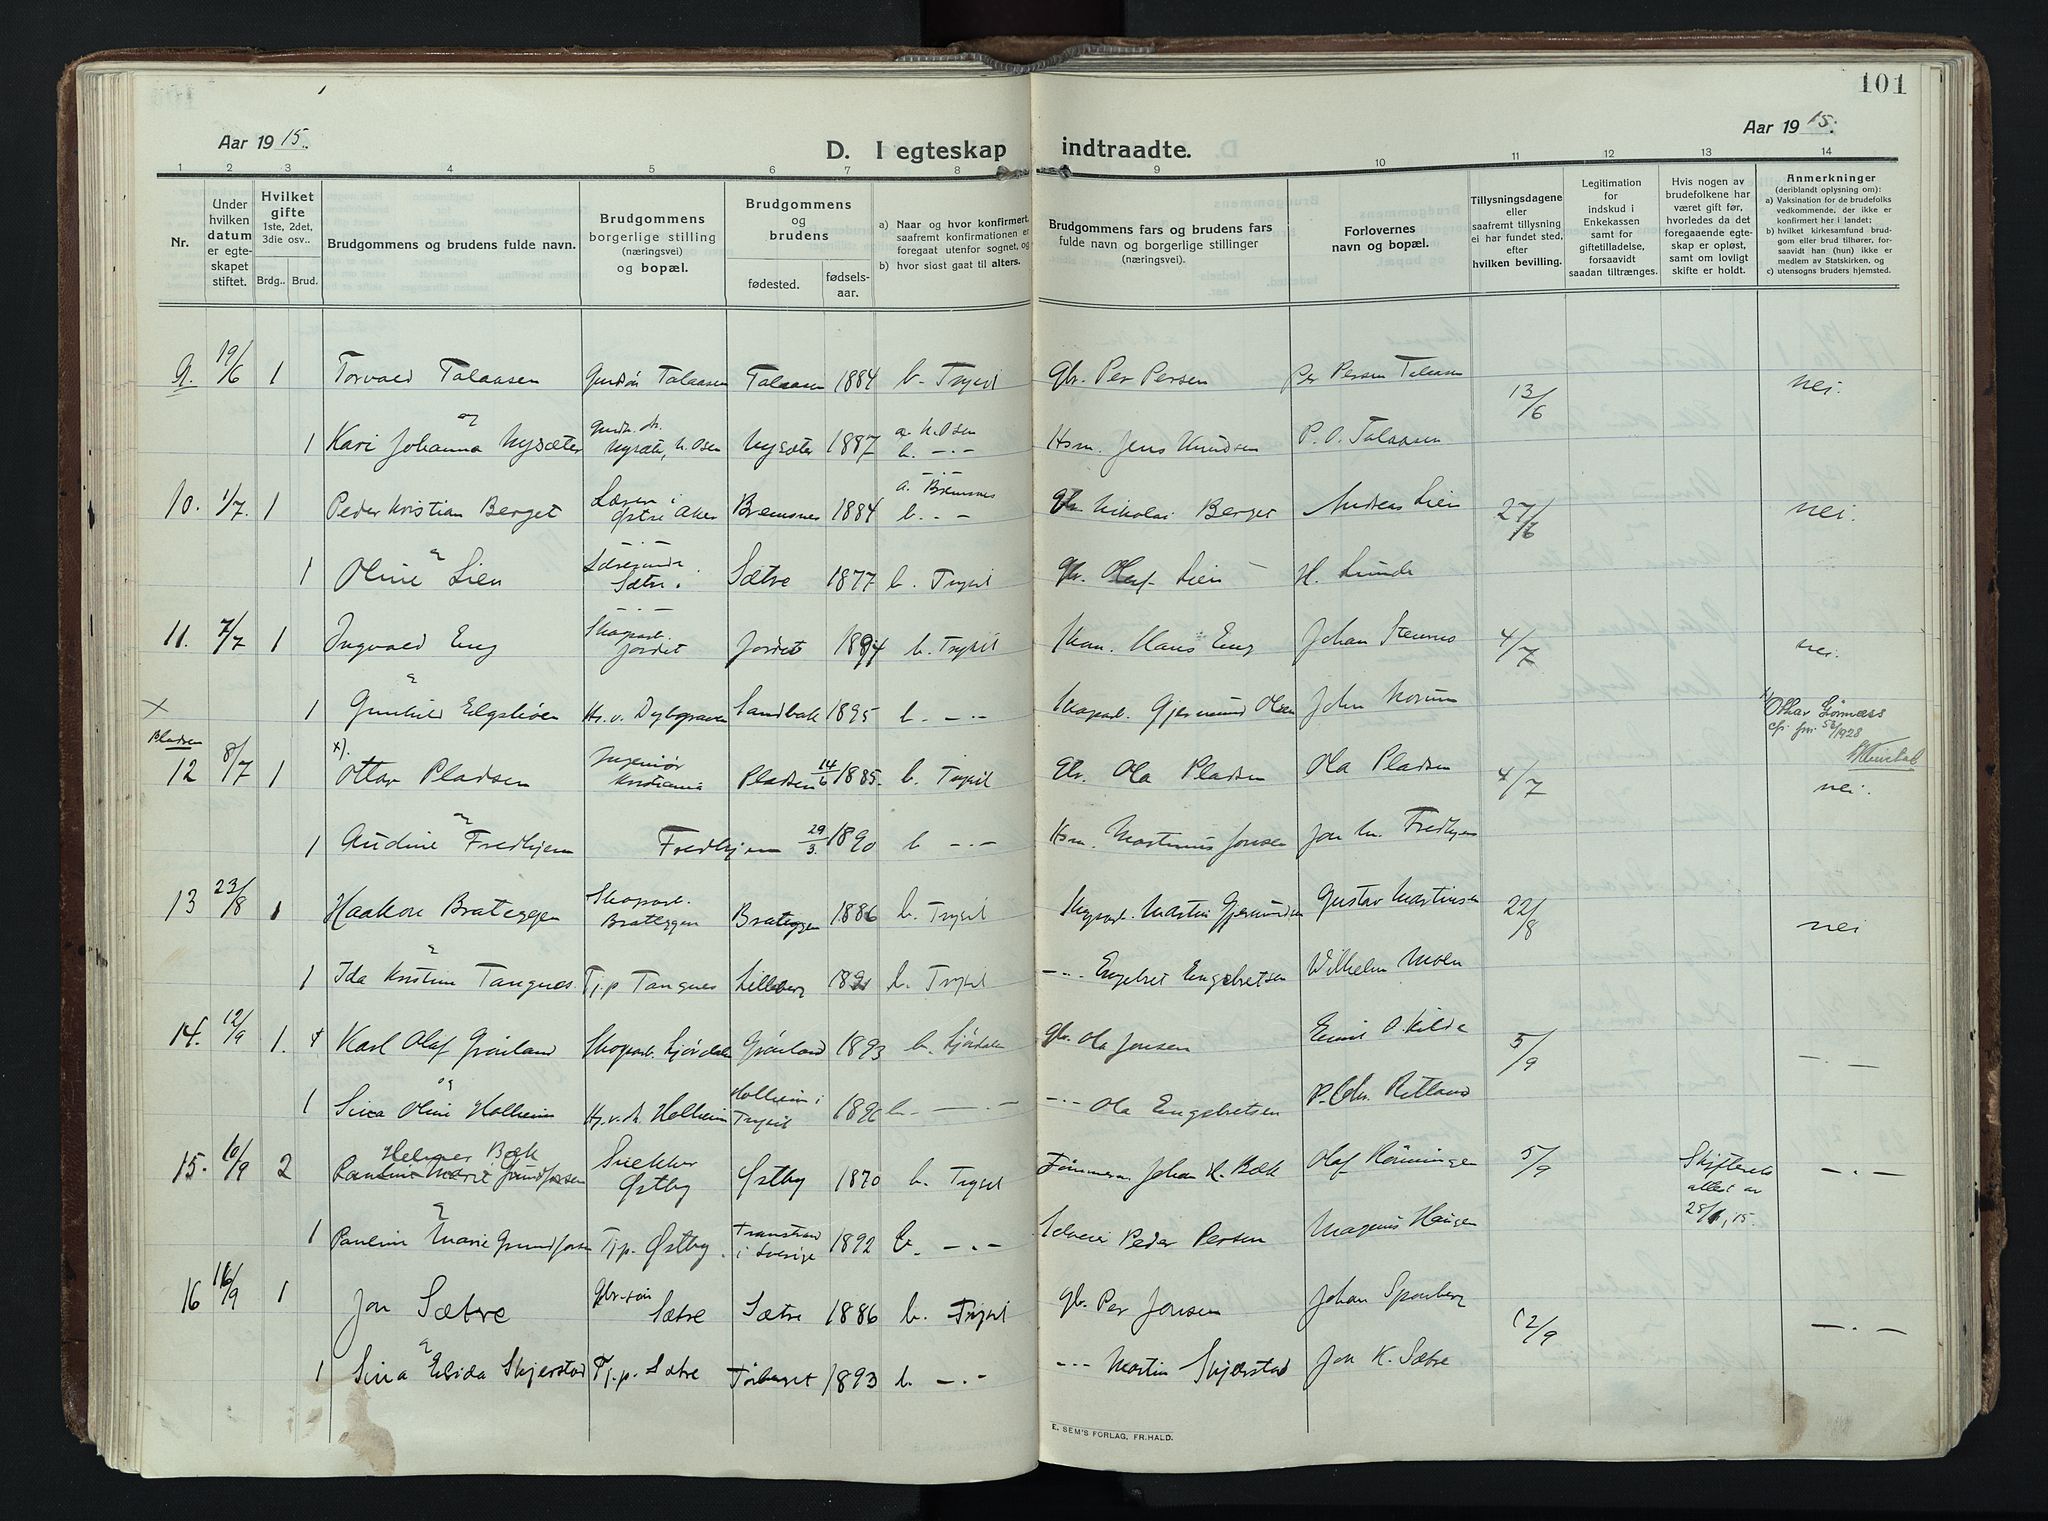 101
Aar 1915.
D. I egteskap indtraadte.
Aar 1915.
1 2 3 4 5 6 7 8 9 10 11 12 13 14
Nr.
Under hvilken datum er egteskapet stiftet.
Hvilket gifte 1ste, 2det, 3die osv..
Brdg.. Brud.
Brudgommens og brudens fulde navn.
Brudgommens borgerlige stilling (næringsvei) og bopæl.
Brudgommens og brudens
fødested. fødselsaar.
a) Naar og hvor konfirmert, saafremt konfirmationen er foregaat utenfor sognet, og
b) hvor sidst gaat til alters.
Brudgommens fars og brudens fars fulde navn og borgerlige stillinger (næringsvei).
Forlovernes navn og bopæl.
Tillysningsdagene eller saafremt tillysning ei har fundet sted, efter hvilken bevilling.
Legitimation for indskud i Enkekassen samt for giftetilladelse, forsaavidt saadan tiltrænges.
Hvis nogen av brudefolkene har været gift før, hvorledes da det foregaaende egteskap er opløst, samt om lovligt skifte er holdt.
Anmerkninger (deriblandt oplysning om):
a) Vaksination for de brudefolks vedkommende, der ikke er konfirmation her i landet;
b) hvilket kirkesamfund brudgom eller brud tilhører, forsaavidt han (hun) ikke er medlem av Statskirken, og
c) utensogns bruders hjemsted.
9. 19/6 1 Torvald Talaasen Talaasen Talaasen 1884 b. Trysil Gbr. Per Persen Per Persen Talaasen 13/6 nei.
og
1 Kari Johanna Nysæter Nysæter, N. Osen Nysæter 1887 a. N. Osen b. -.- Hsm. Jens Knudsen P. O. Talaasen
10. 1/7. 1 Peder Kristian Berget Lærer i Østre Aker Bremsnes 1884 a. Bremsnes b. -.- Gbr. Nikolai Berget Andreas Lien 27/6 nei.
1 Oline Lien Lærerinde Sætre. Sætre 1877 b. Trysil Gbr. Olaf Lien H. Lunde
11. 7/7 1 Ingvald Eng Skogarb. Jordet Jordet 1894 b. Trysil Hans Eng Johan Stennes 4/7 nei.
x 1 Gunhild Elgshøen Sandbak 1895 b. -.- Skogarb. Gjermund Olsen John Morum
Pladsen
12 8/7 1 x). Ottar Pladsen Ingeniør Kristiania Pladsen 14/6 1885. b. Trysil Gbr. Ola Pladsen Ola Pladsen 4/7 nei.
1 Audine Fredhjem Fredhjem 29/3. 1890 b -.- Hsm. Martinus Jonsen Jon M. Fredhjem
13 23/8 1 Haakon Brateggen Skogarb. Brateggen Brateggen 1886 b. Trysil Skogarb. Martin Gjermundsen Gustav Martinsen 22/8 nei
1 Ida Kristine Tangnæs. Tj.p Tangnes Lilleberg b. Trysil -.- Engebret Engebretsen Wilhelm Moen
14. 12/9 1. Karl Olaf Grönland Skogarb. Ljördalen Grönland 1893 b. Ljördalen Gbr. Ola Jonsen Emil O. Kilde 5/9 -.-
og
1 Sina Oline Holheim Holheim Holheim i Trysil b. -.- -.- Ola Engebretsen P. Chr. Ritland
15. 10/9 2 Helmer Bæk Snekker Østby Østby 1870 b. Trysil Tömmerm. Johan H. Bæk Olaf Rönningen 5/9 -.-
1 Pauline Marie Grundforsen Tj.p. Østby. Transtrand i Sverige 1892 b. -.- Selveier Peder Persen Magnus Haugen
16 16/9 1 Jon Sætre Gbr.søn Sætre Sætre 1886 b. Trysil Gbr. Per Jonsen Johan Sponberg 12/9 -.-
1 Sina Elida Skjerstad Tj.p. Sætre Törberget 1893 b. -.- -.- Martin Skjærstad Jon K. Sætre
E. SEM'S FORLAG, FR.HALD.